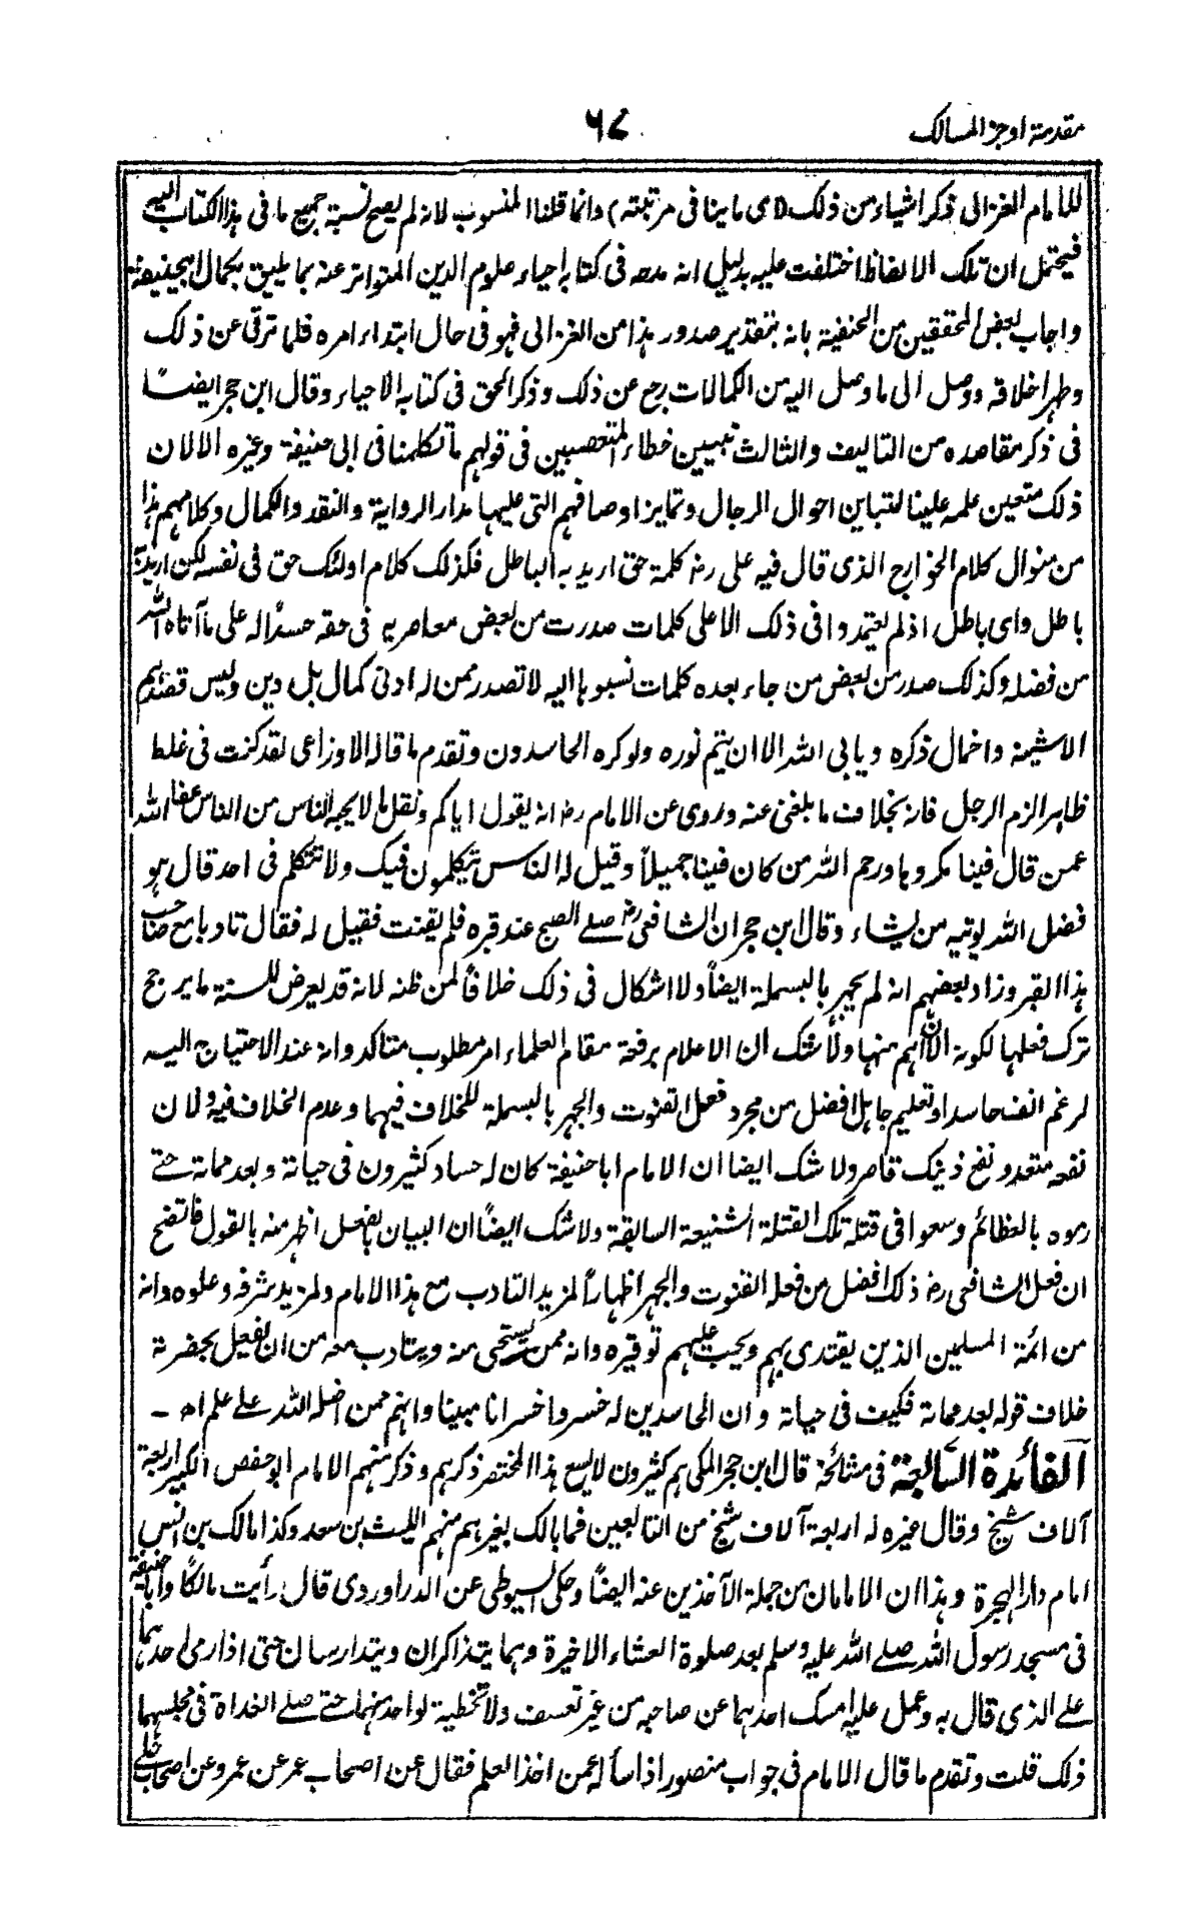 مقدمة اوجز المسالك
٦٧
للامام الغزالى ذكر اشياء من ذلك (اى ماينافى مرتبته) وانما قلنا المنسوب لانه لم يصح نسبة جميع ما فى هذا الكتاب اليه
فيحتمل ان تلك الالفاظ اختلقت عليه بدليل انه مدحه فى كتابه احياء علوم الدين المتواتر عنه بما يليق بكمال ابيحنيفة
واجاب بعض المحققين من الحنفية بانه بتقدير صدور هذا من الغزالى فهو فى حال ابتداء امره فلما ترقى عن ذلك
وطهر اخلاقه ووصل الى ما وصل اليه من الكمالات رجع عن ذلك وذكر الحق فى كتابه الاحياء وقال ابن حجر ايضًا
فى ذكر مقاصده من التاليف والثالث تبيين خطاء المتعصبين فى قولهم ما تكلمنا فى ابى حنيفة وغيره الا لان
ذلك متعين علمه علينا لتباين احوال الرجال وتمايز اوصافهم التى عليها مدار الرواية والنقد والكمال وكلامهم هذا
من منوال كلام الخوارج الذى قال فيه على رضـ كلمة حق اريد به الباطل فكذلك كلام اولئك حق فى نفسه لكن اريد به
باطل واى باطل اذ لم يعتمدوا فى ذلك الا على كلمات صدرت من بعض معاصريه فى حقه حسدًا له على ما آتاه الله
من فضله وكذلك صدر من بعض من جاء بعده كلمات نسبوها اليه لا تصدر ممن له ادنى كمال بل دين وليس قصدهم
الا شينه واخمال ذكره ويابى الله الا ان يتم نوره ولو كره الحاسدون وتقدم ما قاله الاوزاعى لقد كنت فى غلط
ظاهر الزم الرجل فانه بخلاف ما بلغنى عنه وروى عن الامام رضـ انه يقول اياكم ونقل ما لا يحبه الناس من الناس عفا الله
عمن قال فينا مكروها ورحم الله من كان فينا جميلاً وقيل له الناس يتكلمون فيك ولا تتكلم فى احد قال هو
فضل الله يؤتيه من يشاء وقال ابن حجر ان الشافعى رضـ صلے الصبح عند قبره فلم يقنت فقيل له فقال تادبا مع صاحب
هذا القبر وزاد بعضهم انه لم يجهر بالبسملة ايضاً ولا اشكال فى ذلك خلافاً لمن ظنه لانه قد يعرض للسنة ما يرجح
ترك فعلها لكونه الآن اهم منها ولا شك ان الاعلام برفعة مقام العلماء امر مطلوب متاكد وانه عند الاحتياج اليه
لرغم انف حاسد او تعليم جاهل افضل من مجرد فعل القنوت والجهر بالبسملة للخلاف فيهما وعدم الخلاف فيه ولان
نفعه متعد ونفع ذينك قاصر ولا شك ايضا ان الامام ابا حنيفة كان له حساد كثيرون فى حياته وبعد مماته حتے
رموه بالعظائم وسعوا فى قتلة تلك القتلة الشنيعة السابقة ولا شك ايضاً ان البيان بالفعل اظهر منه بالقول فاتضح
ان فعل الشافعى رضـ ذلك افضل من فعله القنوت والجهر اظهاراً لمزيد التادب مع هذا الامام ولمزيد شرفه وعلوه وانه
من ائمة المسلمين الذين يقتدى بهم ويجب عليهم توقيره وانه ممن يستحى منه ويتادب معه من ان يفعل بحضرته
خلاف قوله بعد مماته فكيف فى حياته وان الحاسدين له خسروا خسرانا مبينا وانهم ممن اضله الله علے علم اه ـ
الفائدة السابعة فى مشائخه قال ابن حجر المكى هم كثيرون لا يسع هذا المختصر ذكرهم وذكر منهم الامام ابو حفص الكبير اربعة
آلاف شيخ وقال غيره له اربعة آلاف شيخ من التابعين فما بالك بغيرهم منهم الليث بن سعد وكذا مالك بن انس
امام دار الهجرة وهذان الامامان من جملة الآخذين عنه ايضاً وحكى السيوطى عن الدراوردى قال رأيت مالكًا وابا حنيفة
فى مسجد رسول الله صلے الله عليه وسلم بعد صلوة العشاء الاخيرة وهما يتذاكران ويتدارسان حتى اذا رمى احدهما
علے الذى قال به وعمل عليه امسك احدهما عن صاحبه من غير تعسف ولا تخطية لواحد منهما حتے صلے الغداة فى مجلسهما
ذلك قلت وتقدم ما قال الامام فى جواب منصور اذ اسأله عمن اخذ العلم فقال عن اصحاب عمر عن عمرو عن اصحاب علے